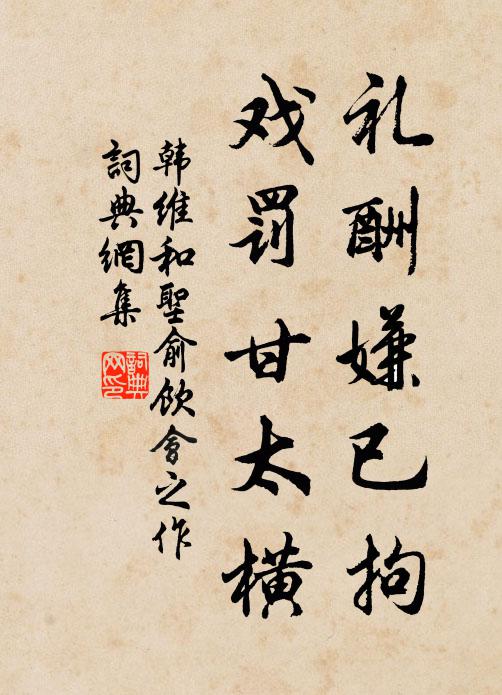 礼酬嫌已拘
戏罚甘太横
韩维和聖俞饮會之作
詞典網集
詞典网印